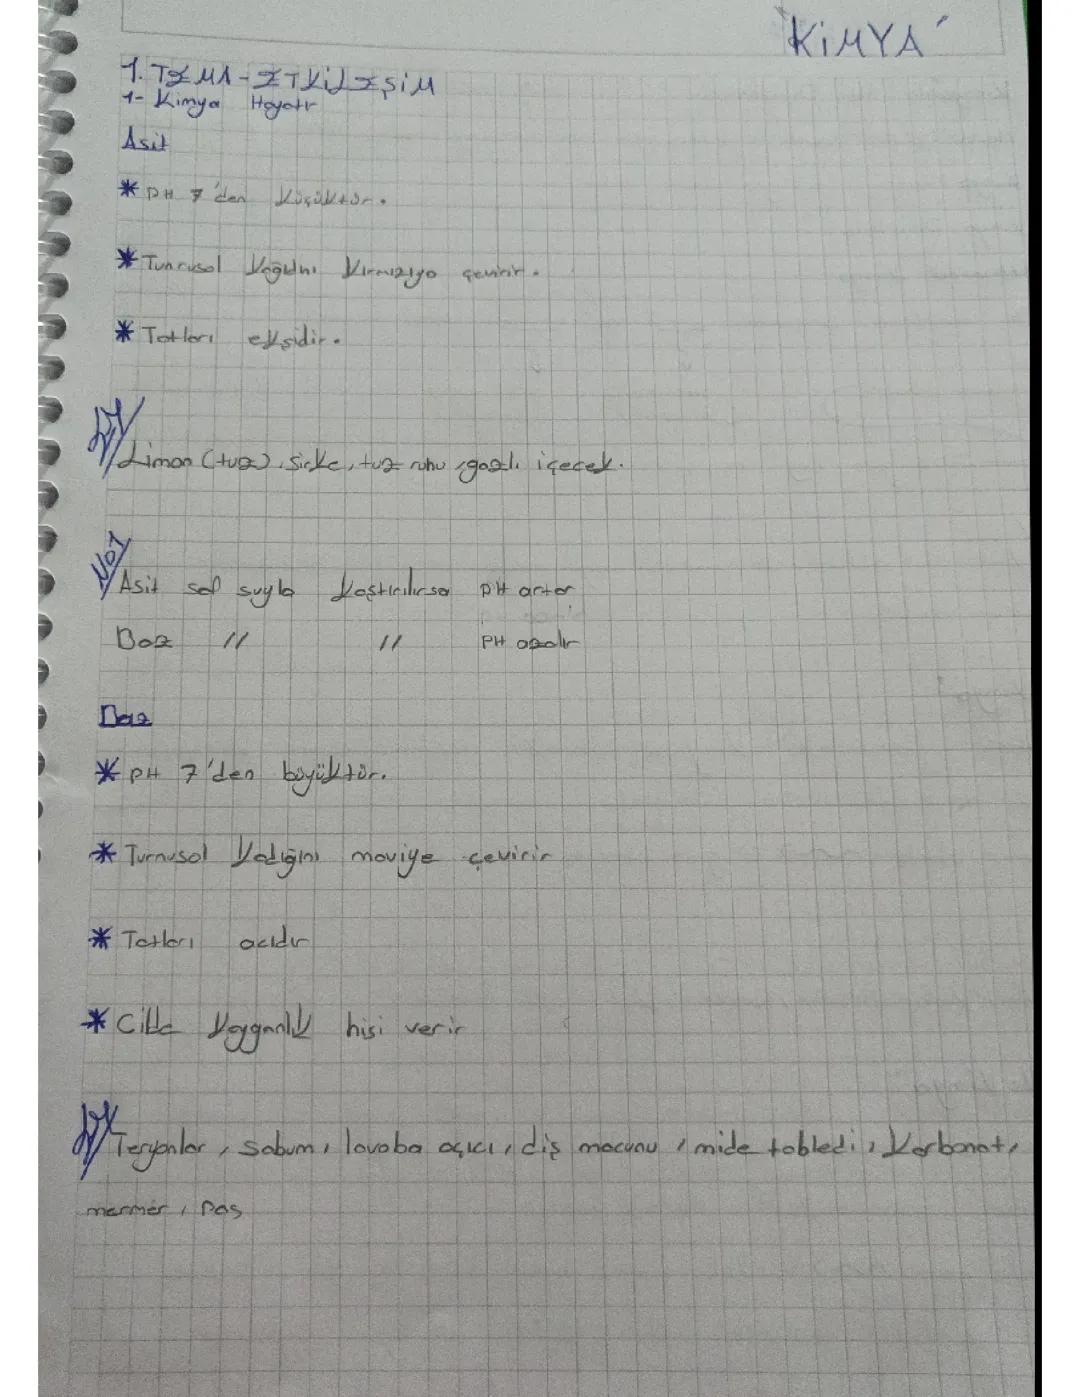 KİMYA
1. TEMA - ETKİLEŞİM
1- Kimya Hayatı
Asit
* PH 7'den küçüktür.
* Turnusol kağıdını kırmızıya çevirir.
* Tatları ekşidir.
Limon (tuz), sirke, tuz ruhu, gazlı içecek.
NOT
Asit saf suyla karıştırılırsa PH artar
Baz " " PH azalır
Baz
* PH 7'den büyüktür.
* Turnusol kağıdını maviye çevirir
* Tatları acıdır
* Cilde kayganlık hissi verir
, Sabun, lavaba açıcı, diş macunu, mide tabledi, karbonat,
mermer, pas